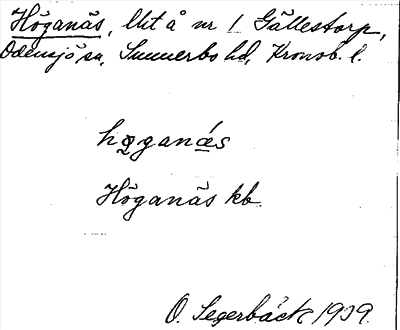 Höganäs, lht å nr 1 Gällestorp,
Odensjö sn, Sunnerbo hd, Kronob. l.
høganäs
Höganäs kb.
O. Segerbäck 1939.